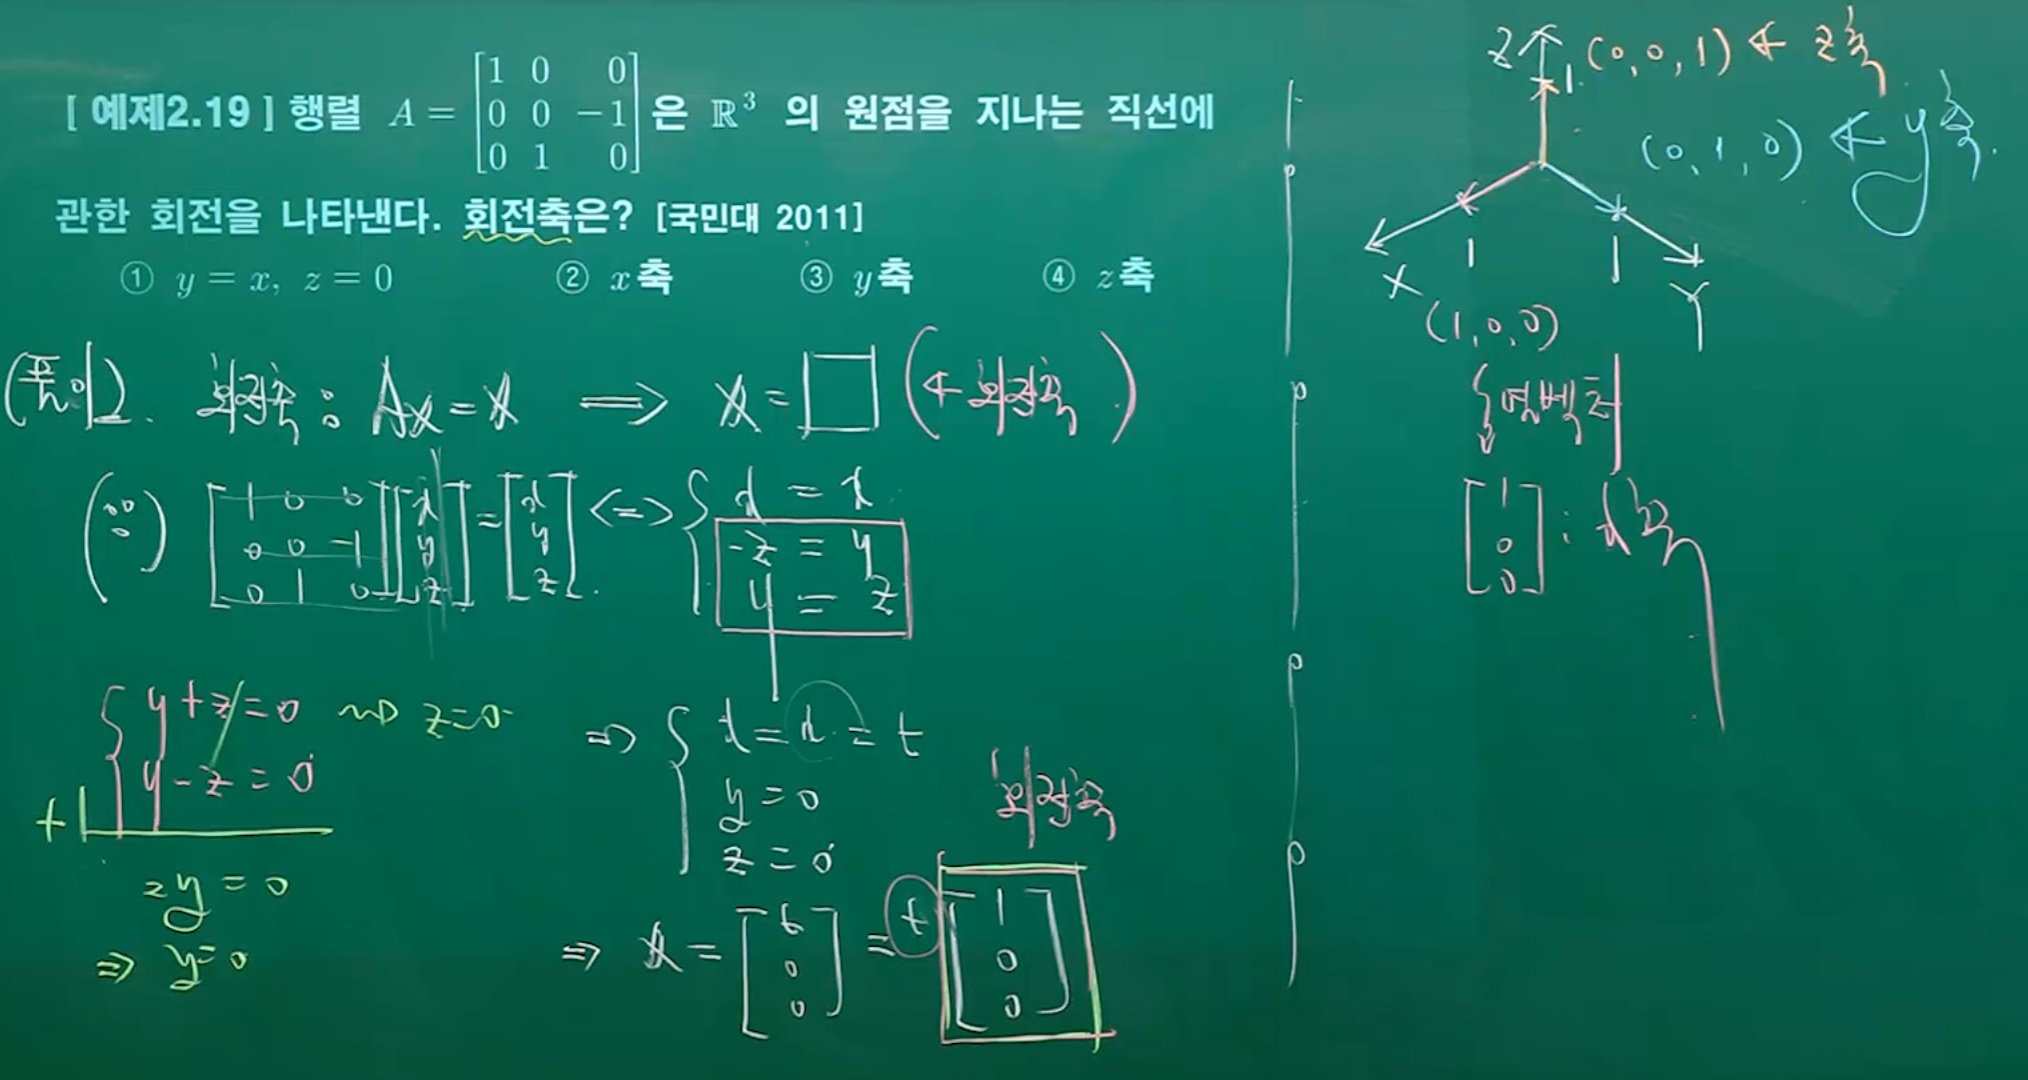 [ 예제2.19 ] 행렬 A = [1 0 0; 0 0 -1; 0 1 0] 은 ℝ³ 의 원점을 지나는 직선에
관한 회전을 나타낸다. 회전축은? [국민대 2011]
① y = x, z = 0 ② x축 ③ y축 ④ z축
(풀이). 회전축 : Ax = x ⟹ x = □ (← 회전축)
(∵) [1 0 0; 0 0 -1; 0 1 0] [x; y; z] = [x; y; z] <=> { x = x
-z = y
y = z
{ y + z = 0 ⇝ z = 0
y - z = 0
+
2y = 0
⇒ y = 0
⇒ { x = x = t
y = 0
z = 0
회전축
⇒ x = [t; 0; 0] = t [1; 0; 0]
Z 1 (0, 0, 1) ← z축
(0, 1, 0) ← y축.
1 1
X Y
(1, 0, 0)
열벡터
[1; 0; 0] : x축